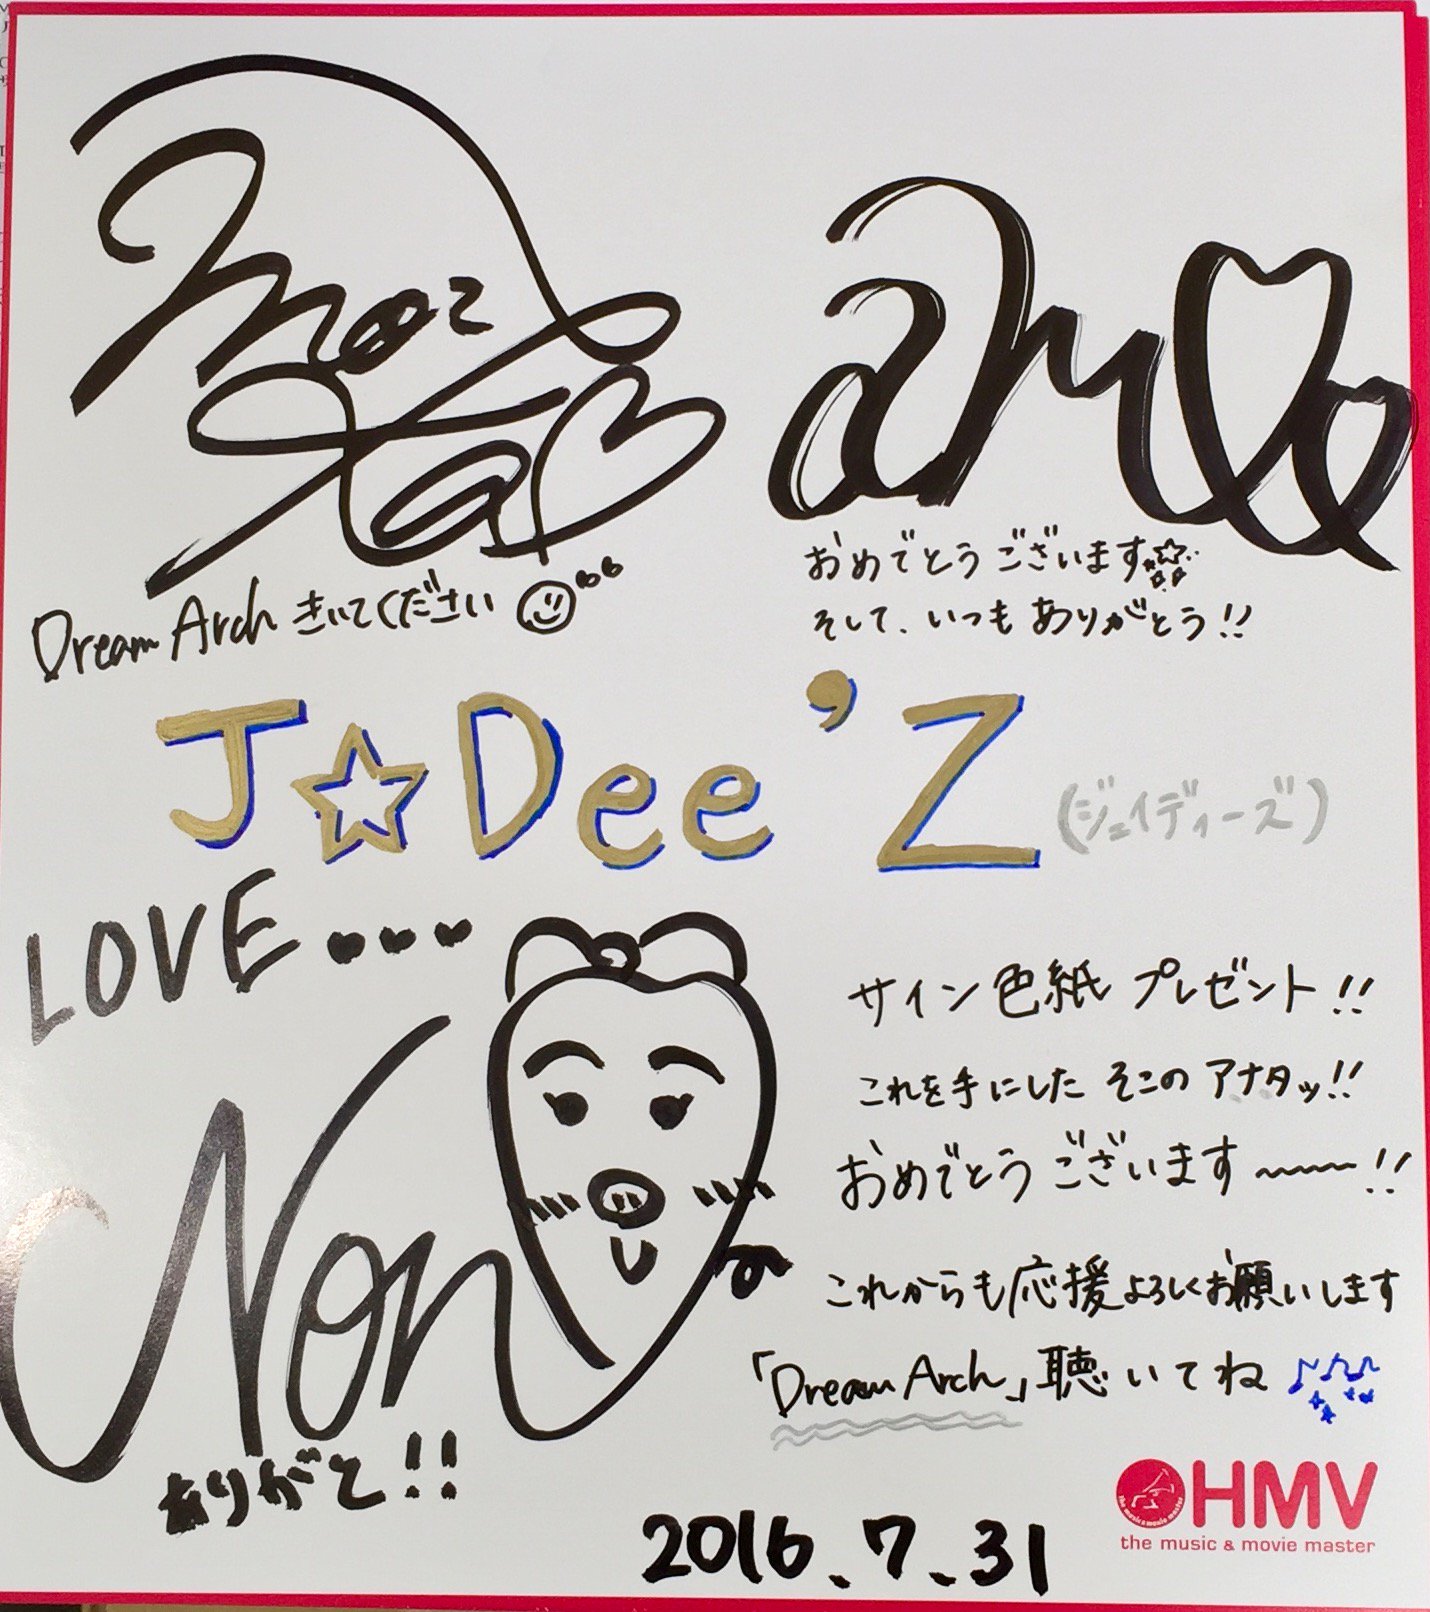 Dream Arch きいてください
amo
おめでとうございます☆
そして、いつもありがとう!!
J☆Dee'Z
(ジェイディーズ)
LOVE...
Non
ありがと!!
サイン色紙プレゼント!!
これを手にしたそこのアナタッ!!
おめでとうございます〜〜!!
これからも応援よろしくお願いします
「Dream Arch」聴いてね♪♪♪
2016.7.31
HMV
the music & movie master